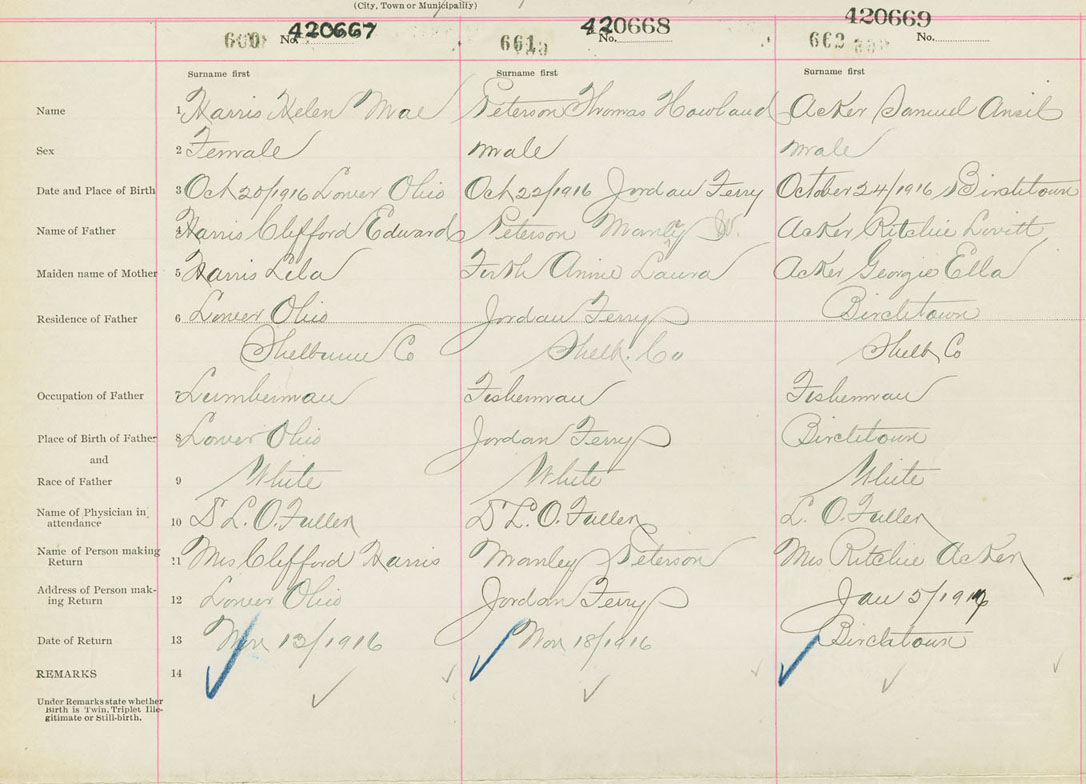 (City, Town or Municipality)
660 No. 420667 661 No. 420668 662 No. 420669
Surname first Surname first Surname first
Name 1 Harris Helen Mae Peterson Thomas Howland Acker Samuel Ansil
Sex 2 Female Male Male
Date and Place of Birth 3 Oct 20/1916 Lower Ohio Oct 22/1916 Jordan Ferry October 24/1916 Birchtown
Name of Father 4 Harris Clifford Edward Peterson Manly Acker Ritchie Lovitt
Maiden name of Mother 5 Harris Lela Annie Laura Acker Georgie Ella
Residence of Father 6 Lower Ohio Jordan Ferry Birchtown
Shelburne Co Shelb. Co Shelb Co
Occupation of Father 7 Lumberman Fisherman Fisherman
Place of Birth of Father 8 Lower Ohio Jordan Ferry Birchtown
and
Race of Father 9 White White White
Name of Physician in attendance 10 D L. O. Fuller D L. O. Fuller L. O. Fuller
Name of Person making Return 11 Mrs Clifford Harris Manley Peterson Mrs Ritchie Acker
Address of Person making Return 12 Lower Ohio Jordan Ferry Jan 5/1917
Date of Return 13 Nov 13/1916 Nov 18/1916 Birchtown
REMARKS 14
Under Remarks state whether
Birth is Twin, Triplet Ille-
gitimate or Still-birth.